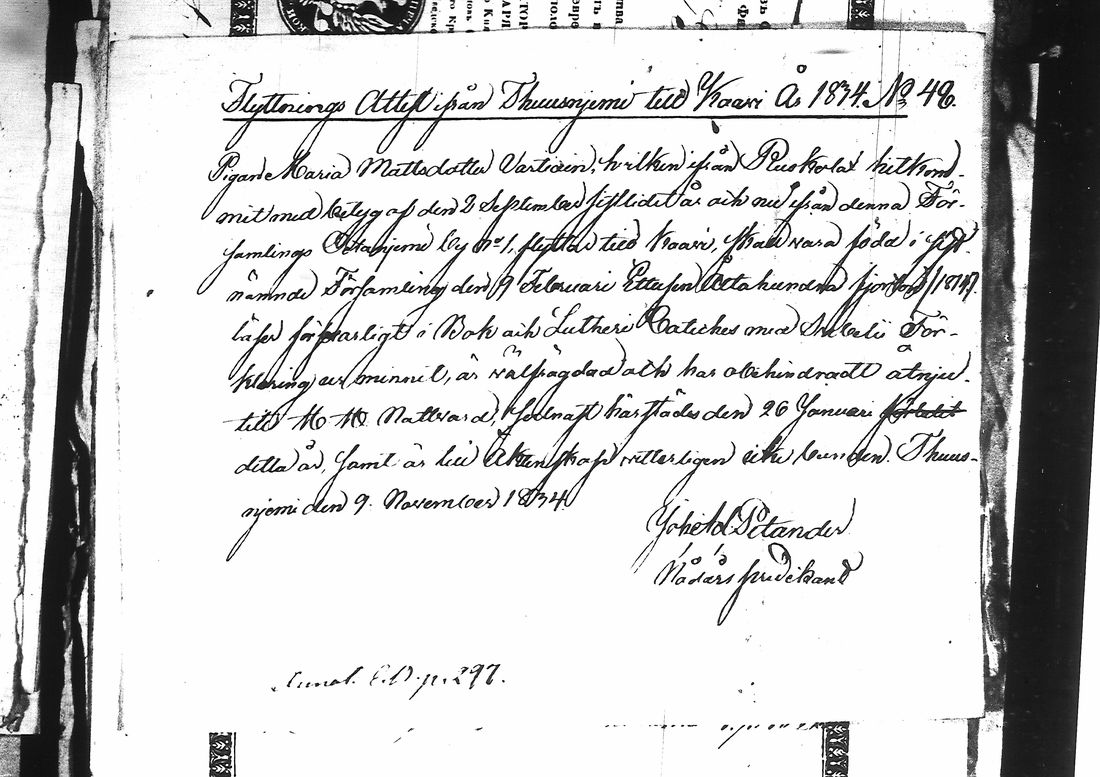 Flyttnings Attest från Thuusnjemi till Kaavi År 1834. No 48.
Pigan Maria Mattsdotter Vartiain, hvilken ifrån Ruskola hitkom-
mit med betyg af den 2 September sistlidet år och nu ifrån denna För-
samlings by No 1, flyttar till Kaavi, skall vara född i sist-
nämnde Församling den 9 Februari Ettusen Åttahundra fjorton /1814/.
läser försvarligt i Bok och Lutheri Cateches med Svebelii För-
klaring ur minnit, är välfrägdad och har obehindradt åtnju-
tit H. H. Nattvard, sednast härstädes den 26 Januari
detta år, samt är till Äktenskap vetterligen icke bunden. Thuus-
njemi den 9. November 1834.
Petander
Nådårs predikant
p. 297.